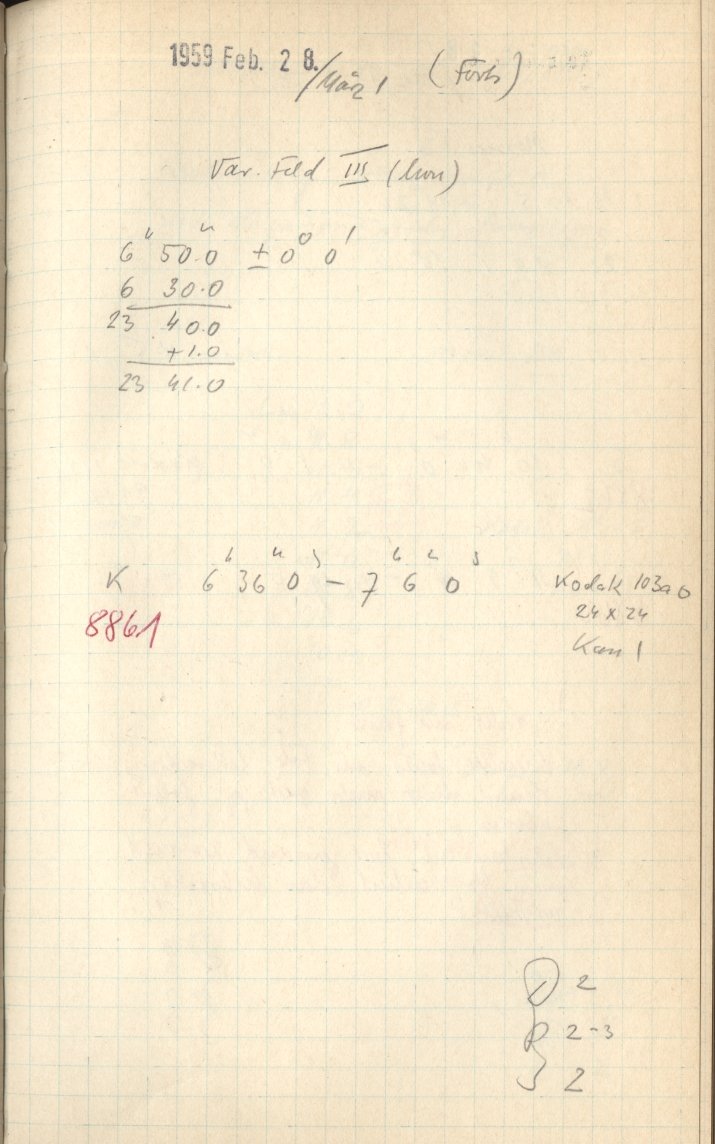 1959 Feb. 28./März 1 (Forts)
Var. Feld III
6ʰ 50.0 ± 0° 0'
6 30.0
23 40.0
+1.0
23 41.0
K 6ʰ 36ᵐ 0ˢ – 7ʰ 6ᵐ 0ˢ Kodak 103a0
8861 24 x 24
Kam 1
D 2
R 2-3
S 2